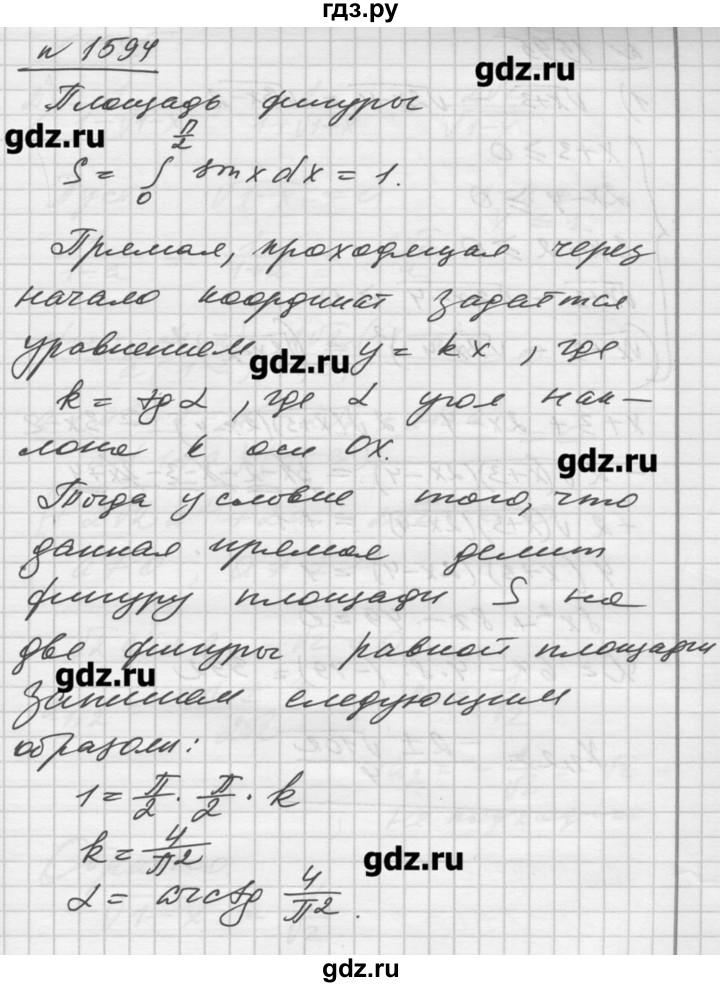 гдз.ру
n 1594
gdz.ru
Площадь фигуры
gdz.ru
S = ∫₀^{π/2} sin x dx = 1.
Прямая, проходящая через
начало координат задаётся
уравнением y = kx, где
gdz.ru
k = tg α, где α угол нак-
лона к оси Ox.
gdz.ru
Тогда условие того, что
данная прямая делит
фигуру площади S на
две фигуры равной площади
gdz.ru
запишем следующим
образом:
1 = π/2 · π/2 · k
k = 4/π2
gdz.ru
α = arctg 4/π2.
gdz.ru